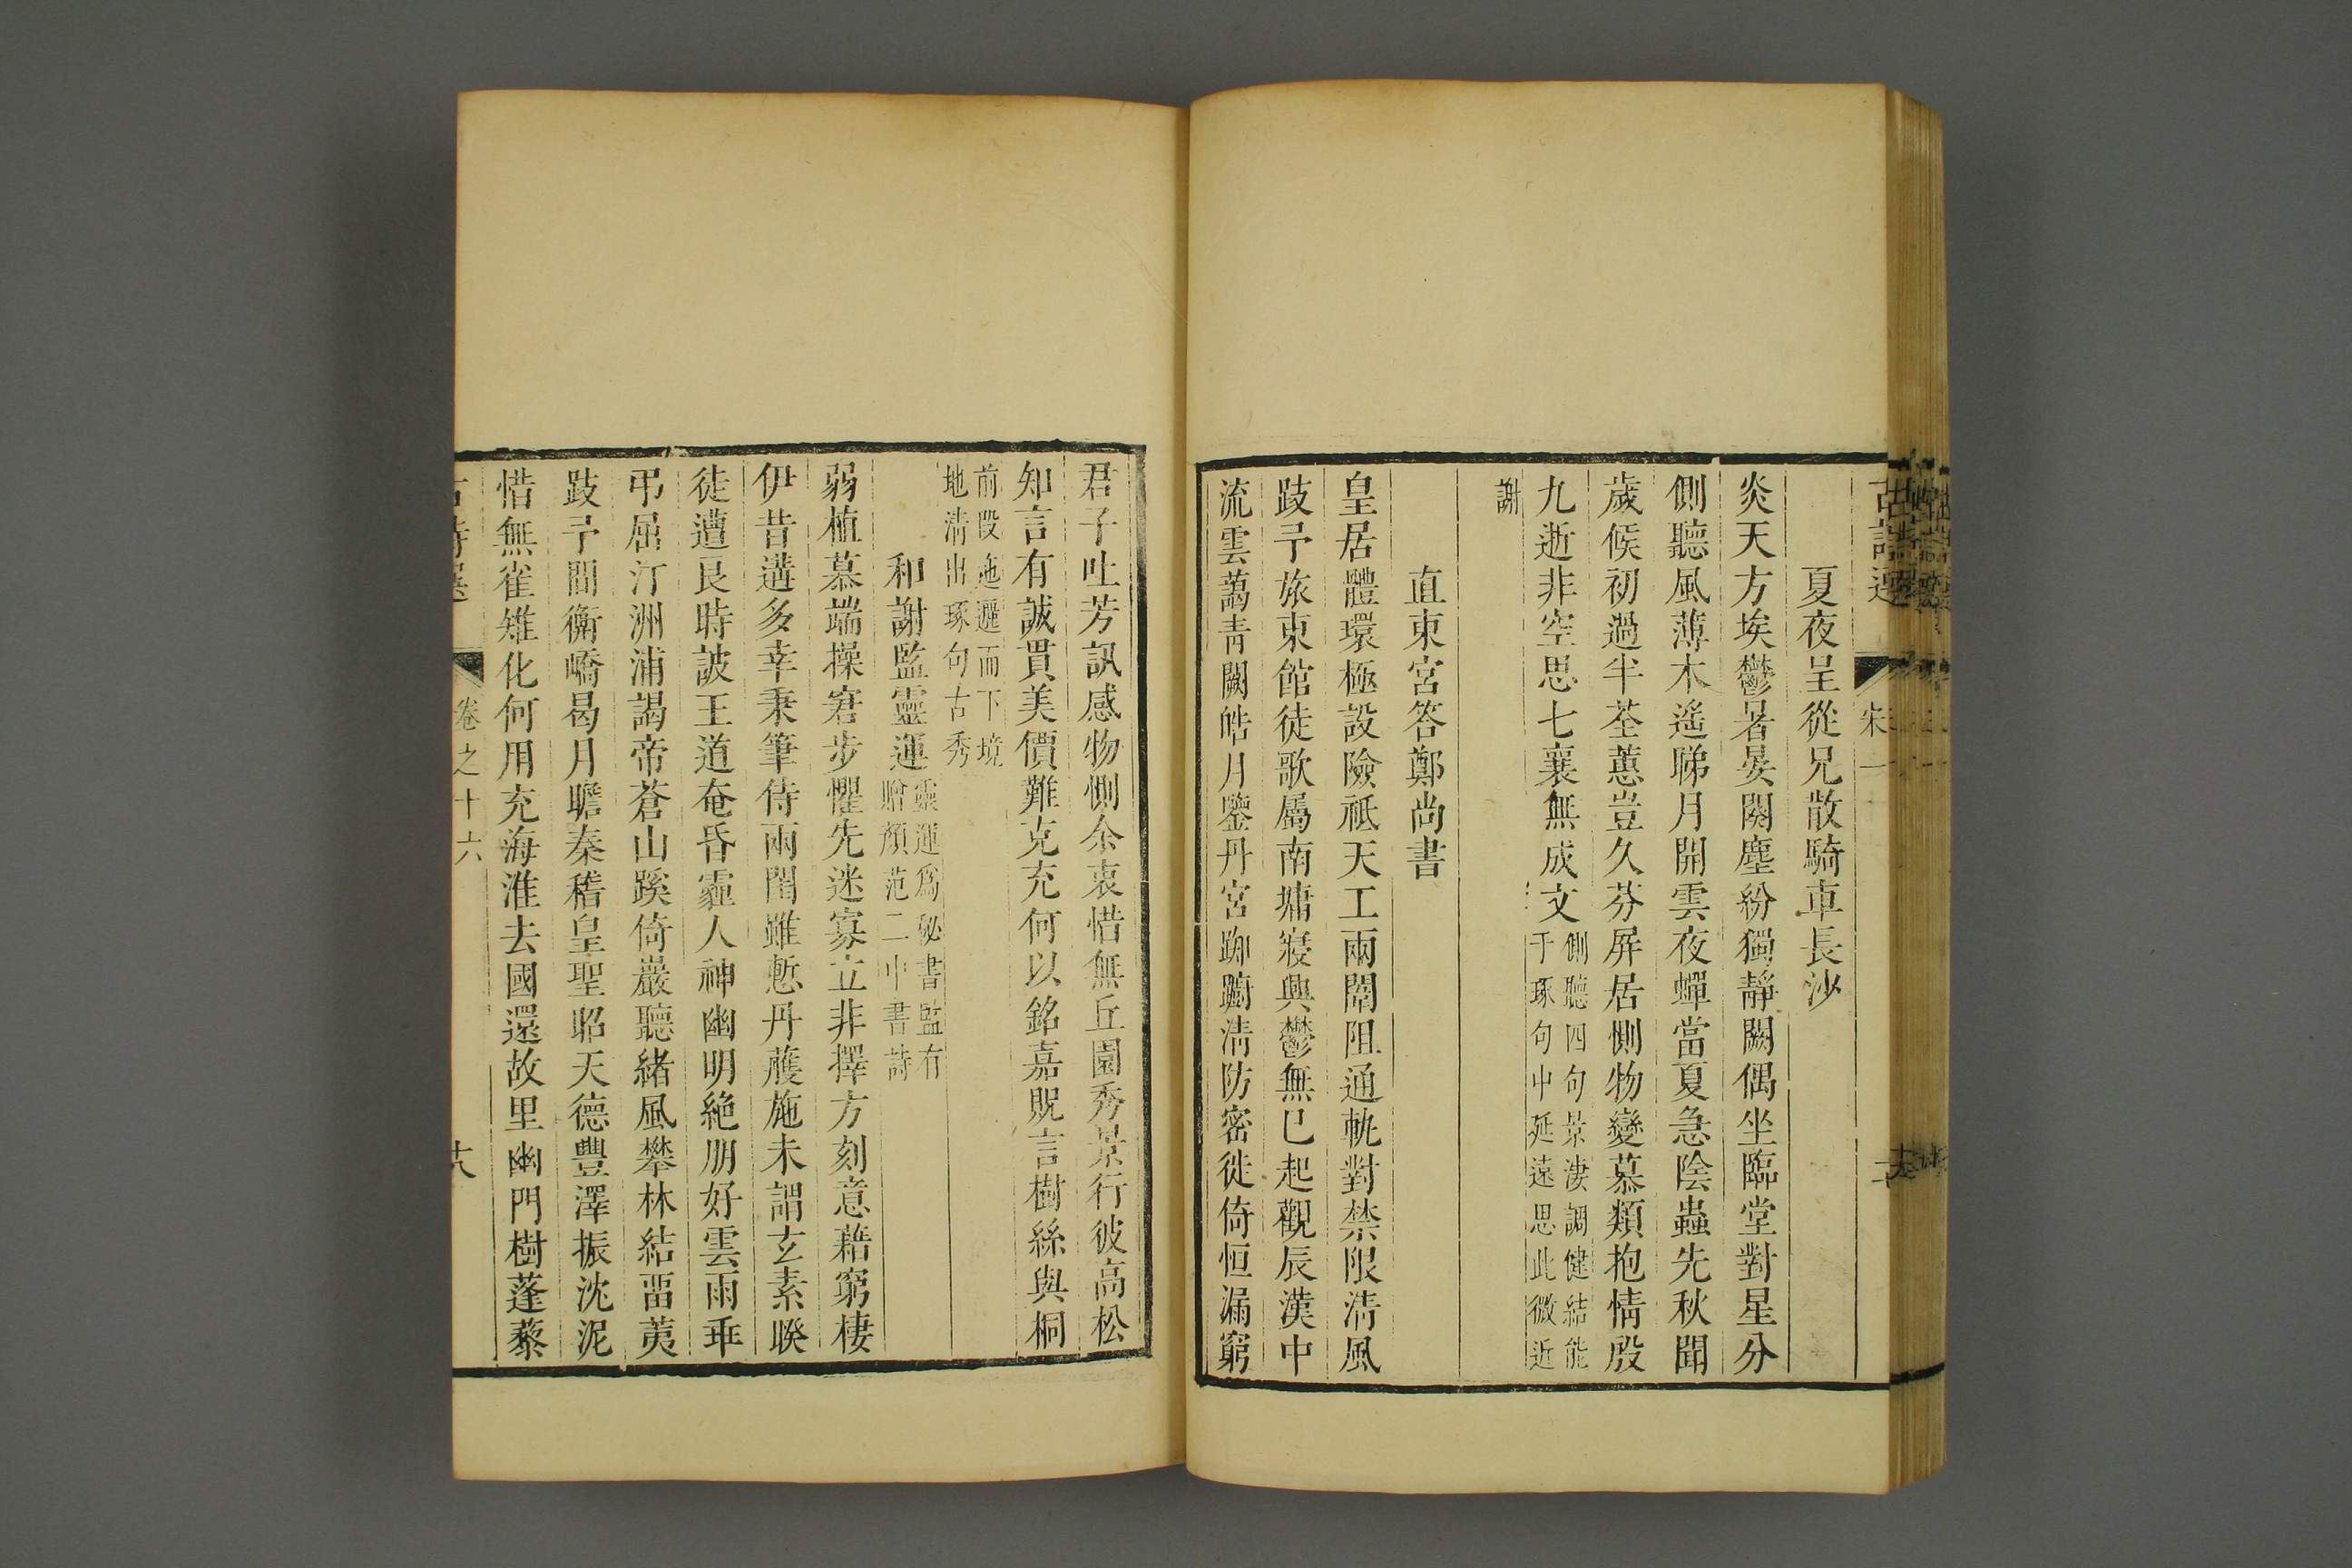 古詩選 宋一
夏夜呈從兄散騎車長沙
炎天方埃鬱暑晏闋塵紛獨靜闕偶坐臨堂對星分
側聽風薄木遙睇月開雲夜蟬當夏急陰蟲先秋聞
歲候初過半荃蕙豈久芬屏居惻物變慕類抱情殷
九逝非空思七襄無成文
側聽四句景淒調健結能
于琢句中延遠思此微近
謝
直東宮答鄭尚書
皇居體環極設險祗天工兩闈阻通軌對禁限淸風
跂予旅東館徒歌屬南墉寢興鬱無已起觀辰漢中
流雲藹靑闕皓月鑒丹宮踟躕淸防密徙倚恒漏窮
君子吐芳訊感物惻余衷惜無丘園秀景行彼高松
知言有誠貫美價難克充何以銘嘉貺言樹絲與桐
前段迤邐而下境
地淸出琢句古秀
和謝監靈運
靈運爲秘書監有
贈顏范二中書詩
弱植慕端操窘步懼先迷寡立非擇方刻意藉窮棲
伊昔遘多幸秉筆侍兩閨雖慙丹雘施未謂玄素睽
徒遭良時詖王道奄昏霾人神幽明絶朋好雲雨乖
弔屈汀洲浦謁帝蒼山蹊倚巖聽緒風攀林結留荑
跂予間衡嶠曷月瞻秦稽皇聖昭天德豐澤振沈泥
惜無雀雉化何用充海淮去國還故里幽門樹蓬藜
古詩選 卷之十六 十八